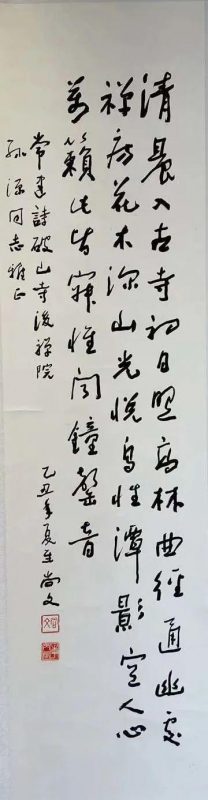 清晨入古寺初日照高林曲徑通幽處
禪房花木深山光悦鳥性潭影空人心
萬籟此皆寂惟闻鐘磬音
常建詩破山寺後禪院
孫源同志雅正
乙丑年夏至尚文